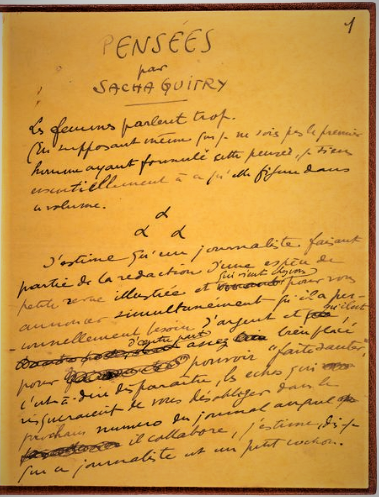 1
PENSÉES
par
SACHA GUITRY
Les femmes parlent trop.
(En supposant même que je ne sois pas le premier
homme ayant formulé cette pensée, je tiens
essentiellement à ce qu'elle figure dans
ce volume.
J'estime qu'un journaliste faisant
partie de la rédaction d'une espèce de
petite revue illustrée et qui vient chez vous pour vous
annoncer simultanément qu'il a per-
-sonnellement besoin d'argent et qu'il est
d'autre part assez bien placé
pour pouvoir "faire sauter",
c'est-à-dire disparaître, les échos qui
risqueraient de vous désobliger dans le
prochain numéro du journal auquel
il collabore, j'estime, dis-je
que ce journaliste est un petit cochon.